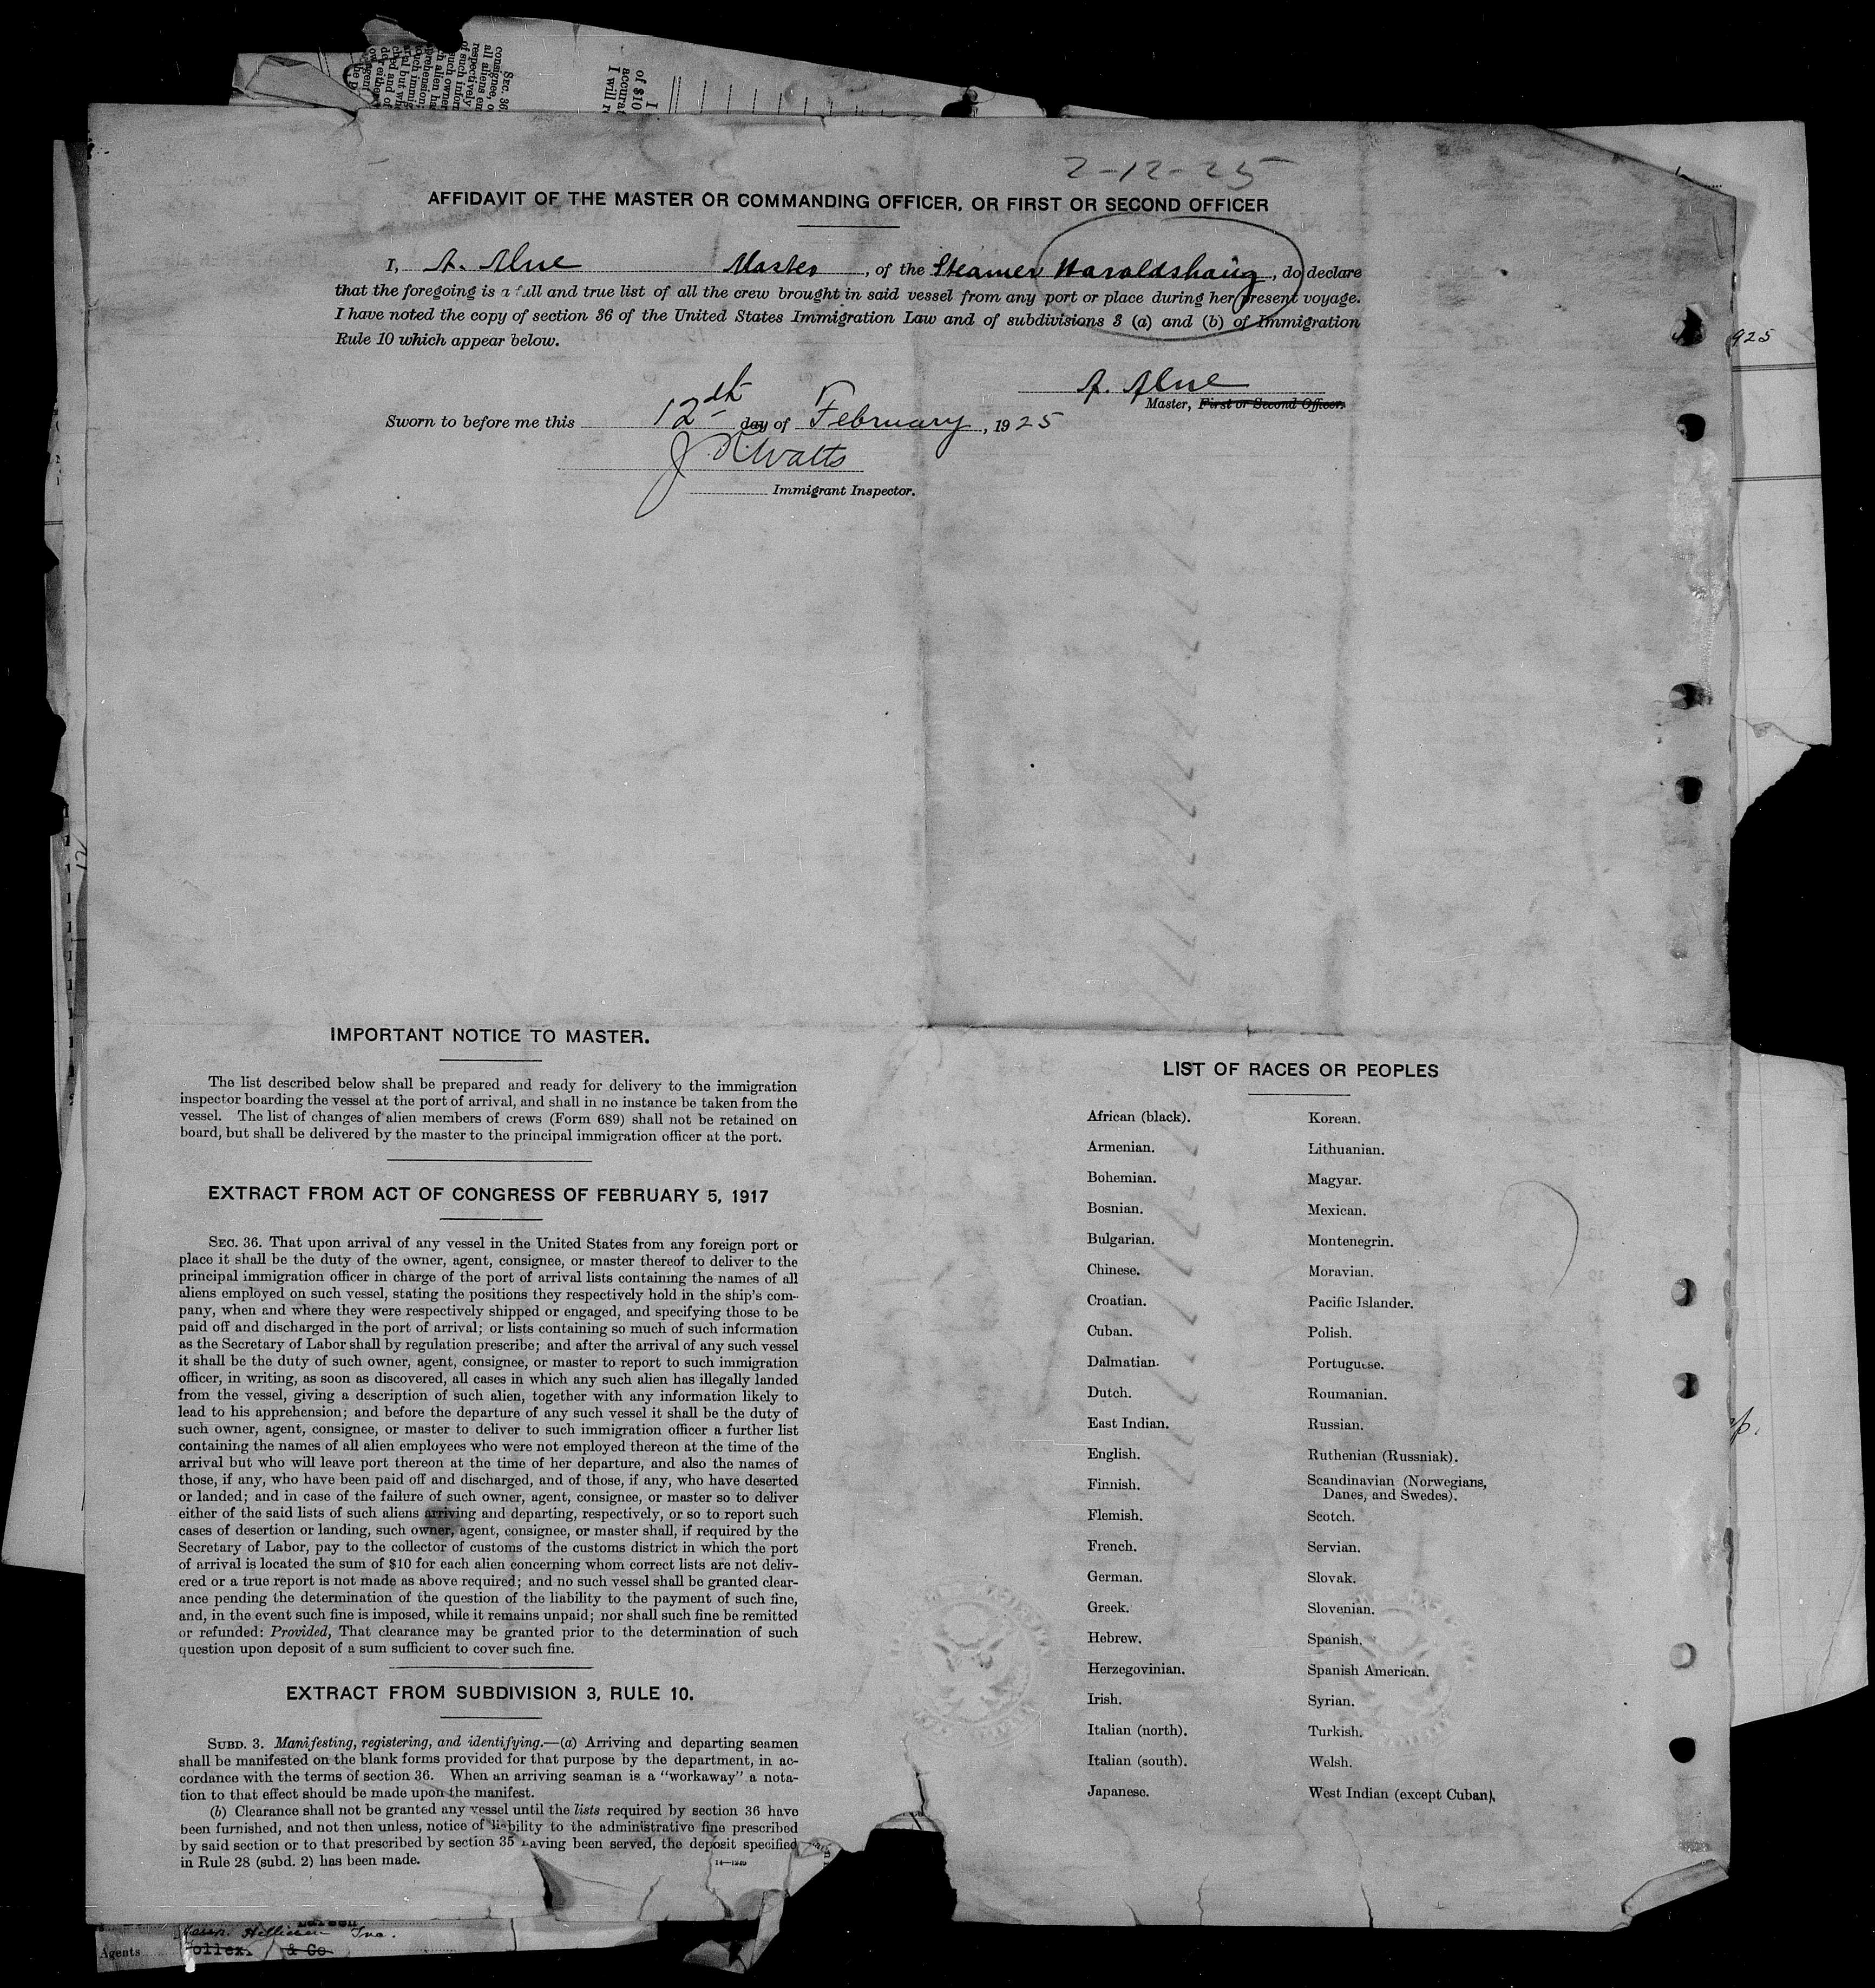 SEC. 36
consignee, o
all aliens em
respectively
of such infor
I
of $10
accurat
I will r
2-12-25
AFFIDAVIT OF THE MASTER OR COMMANDING OFFICER, OR FIRST OR SECOND OFFICER
I, Master, of the Steamer Haroldshaug, do declare
that the foregoing is a full and true list of all the crew brought in said vessel from any port or place during her present voyage.
I have noted the copy of section 36 of the United States Immigration Law and of subdivisions 3 (a) and (b) of Immigration
Rule 10 which appear below.
Master, First or Second Officer.
Sworn to before me this 12th day of February, 1925
J. R. Watts
Immigrant Inspector.
925
IMPORTANT NOTICE TO MASTER.
The list described below shall be prepared and ready for delivery to the immigration
inspector boarding the vessel at the port of arrival, and shall in no instance be taken from the
vessel. The list of changes of alien members of crews (Form 689) shall not be retained on
board, but shall be delivered by the master to the principal immigration officer at the port.
EXTRACT FROM ACT OF CONGRESS OF FEBRUARY 5, 1917
SEC. 36. That upon arrival of any vessel in the United States from any foreign port or
place it shall be the duty of the owner, agent, consignee, or master thereof to deliver to the
principal immigration officer in charge of the port of arrival lists containing the names of all
aliens employed on such vessel, stating the positions they respectively hold in the ship's com-
pany, when and where they were respectively shipped or engaged, and specifying those to be
paid off and discharged in the port of arrival; or lists containing so much of such information
as the Secretary of Labor shall by regulation prescribe; and after the arrival of any such vessel
it shall be the duty of such owner, agent, consignee, or master to report to such immigration
officer, in writing, as soon as discovered, all cases in which any such alien has illegally landed
from the vessel, giving a description of such alien, together with any information likely to
lead to his apprehension; and before the departure of any such vessel it shall be the duty of
such owner, agent, consignee, or master to deliver to such immigration officer a further list
containing the names of all alien employees who were not employed thereon at the time of the
arrival but who will leave port thereon at the time of her departure, and also the names of
those, if any, who have been paid off and discharged, and of those, if any, who have deserted
or landed; and in case of the failure of such owner, agent, consignee, or master so to deliver
either of the said lists of such aliens arriving and departing, respectively, or so to report such
cases of desertion or landing, such owner, agent, consignee, or master shall, if required by the
Secretary of Labor, pay to the collector of customs of the customs district in which the port
of arrival is located the sum of $10 for each alien concerning whom correct lists are not deliv-
ered or a true report is not made as above required; and no such vessel shall be granted clear-
ance pending the determination of the question of the liability to the payment of such fine,
and, in the event such fine is imposed, while it remains unpaid; nor shall such fine be remitted
or refunded: Provided, That clearance may be granted prior to the determination of such
question upon deposit of a sum sufficient to cover such fine.
EXTRACT FROM SUBDIVISION 3, RULE 10.
SUBD. 3. Manifesting, registering, and identifying.—(a) Arriving and departing seamen
shall be manifested on the blank forms provided for that purpose by the department, in ac-
cordance with the terms of section 36. When an arriving seaman is a "workaway" a nota-
tion to that effect should be made upon the manifest.
(b) Clearance shall not be granted any vessel until the lists required by section 36 have
been furnished, and not then unless, notice of liability to the administrative fine prescribed
by said section or to that prescribed by section 35 having been served, the deposit specified
in Rule 28 (subd. 2) has been made.
14—1249
LIST OF RACES OR PEOPLES
African (black).
Armenian.
Bohemian.
Bosnian.
Bulgarian.
Chinese.
Croatian.
Cuban.
Dalmatian.
Dutch.
East Indian.
English.
Finnish.
Flemish.
French.
German.
Greek.
Hebrew.
Herzegovinian.
Irish.
Italian (north).
Italian (south).
Japanese.
Korean.
Lithuanian.
Magyar.
Mexican.
Montenegrin.
Moravian.
Pacific Islander.
Polish.
Portuguese.
Roumanian.
Russian.
Ruthenian (Russniak).
Scandinavian (Norwegians,
Danes, and Swedes).
Scotch.
Servian.
Slovak.
Slovenian.
Spanish.
Spanish American.
Syrian.
Turkish.
Welsh.
West Indian (except Cuban).
Agents
Inc.
& Co